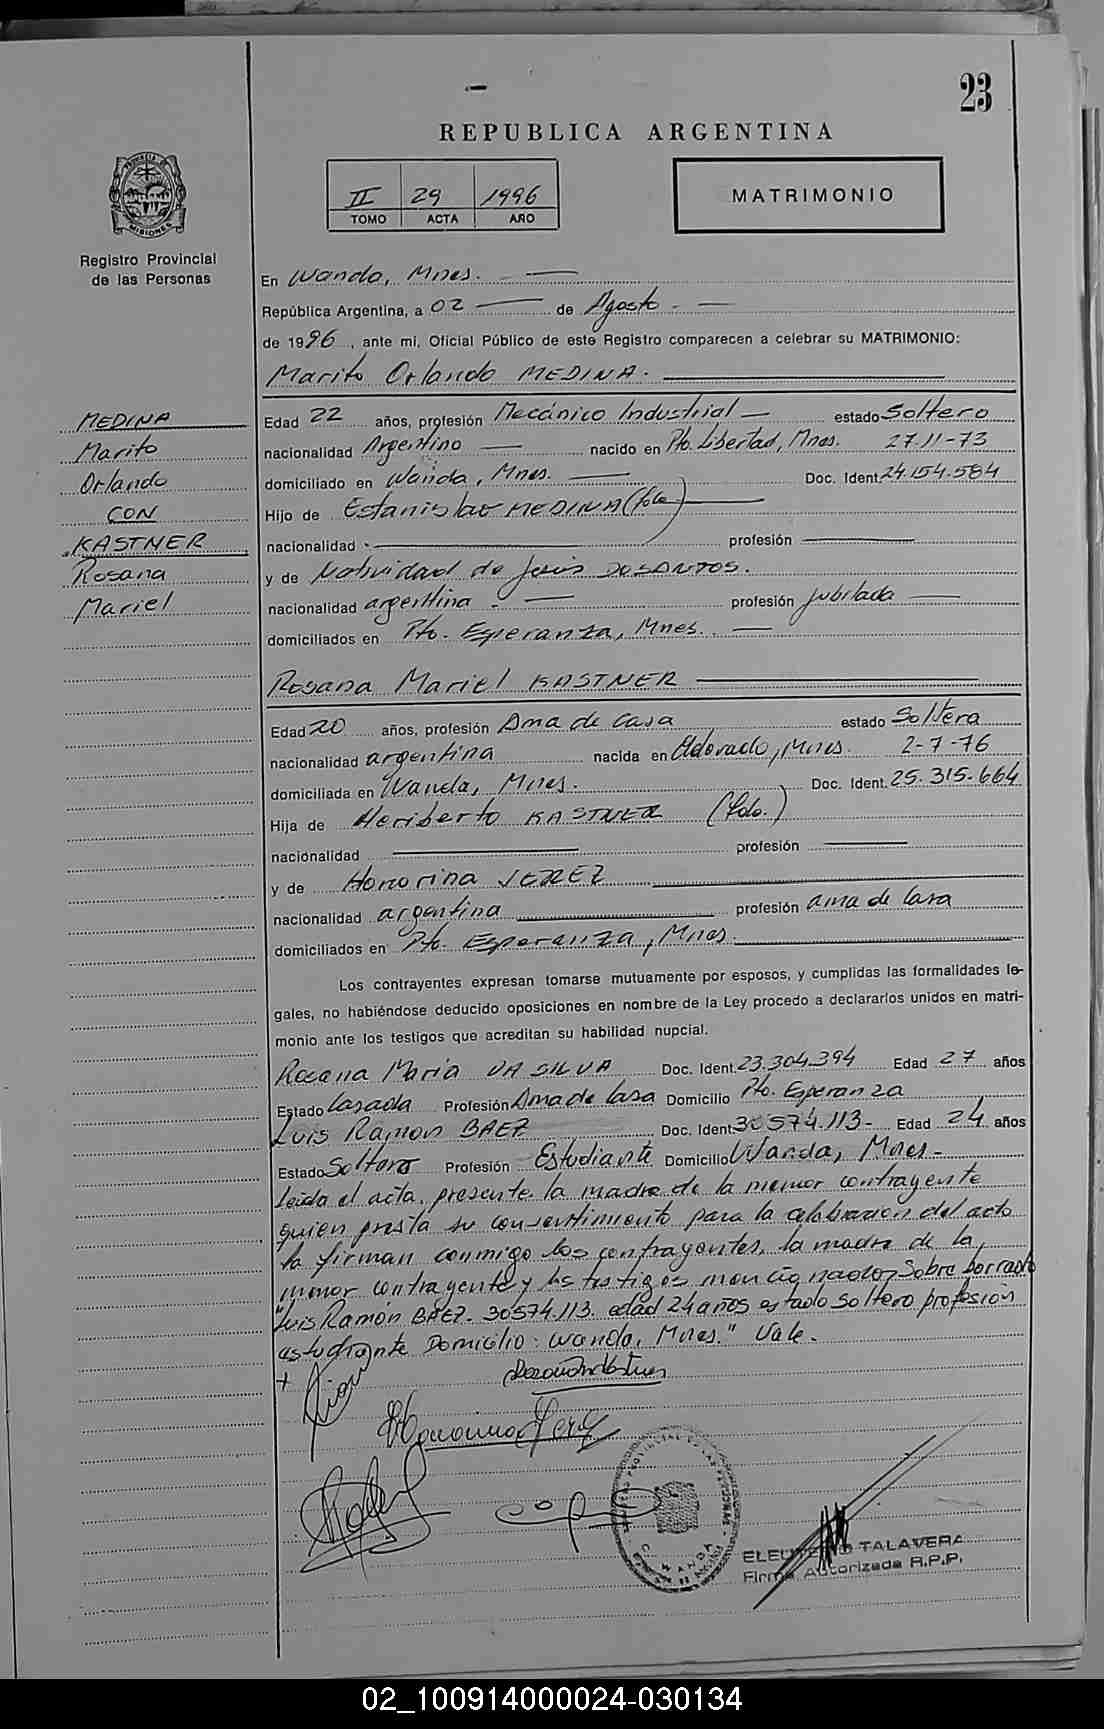 23
REPUBLICA ARGENTINA
II 29 1996
TOMO ACTA AÑO
MATRIMONIO
PROVINCIA DE MISIONES
Registro Provincial
de las Personas
En Wanda, Mnes.
República Argentina, a 02 de Agosto.
de 1996, ante mi, Oficial Público de este Registro comparecen a celebrar su MATRIMONIO:
Marito Orlando MEDINA.
MEDINA
Marito
Orlando
CON
KASTNER
Rosana
Mariel
Edad 22 años, profesión Mecánico Industrial estado Soltero
nacionalidad Argentino nacido en Pto. Libertad, Mnes. 27-11-73
domiciliado en Wanda, Mnes. Doc. Ident. 24.154.584
Hijo de Estanislao MEDINA (fdo.)
nacionalidad profesión
y de Natividad de Jesús DOSANTOS.
nacionalidad argentina profesión jubilada
domiciliados en Pto. Esperanza, Mnes.
Rosana Mariel KASTNER
Edad 20 años, profesión Ama de Casa estado Soltera
nacionalidad argentina nacida en Eldorado, Mnes. 2-7-76
domiciliada en Wanda, Mnes. Doc. Ident. 25.315.664
Hija de Heriberto KASTNER (fdo.)
nacionalidad profesión
y de Honorina JEREZ
nacionalidad argentina profesión ama de casa
domiciliados en Pto. Esperanza, Mnes.
Los contrayentes expresan tomarse mutuamente por esposos, y cumplidas las formalidades le-
gales, no habiéndose deducido oposiciones en nombre de la Ley procedo a declararlos unidos en matri-
monio ante los testigos que acreditan su habilidad nupcial.
Rosana María DA SILVA Doc. Ident. 23.304.394 Edad 27 años
Estado Casada Profesión Ama de Casa Domicilio Pto. Esperanza
Luis Ramon BAEZ Doc. Ident. 30574.113- Edad 24 años
Estado Soltero Profesión Estudiante Domicilio Wanda, Mnes-
Leida el acta, presente la madre de la menor contrayente
quien presta su consentimiento para la celebracion del acto
la firman conmigo los contrayentes, la madre de la
menor contrayente y los testigos mencionados, Sobre borrado
"Luis Ramón BAEZ. 30574.113. edad 24 años estado soltero profesión
estudiante Domicilio: Wanda, Mnes." Vale.
ELEUTERIO TALAVERA
Firma Autorizada R.P.P.
02_100914000024-030134